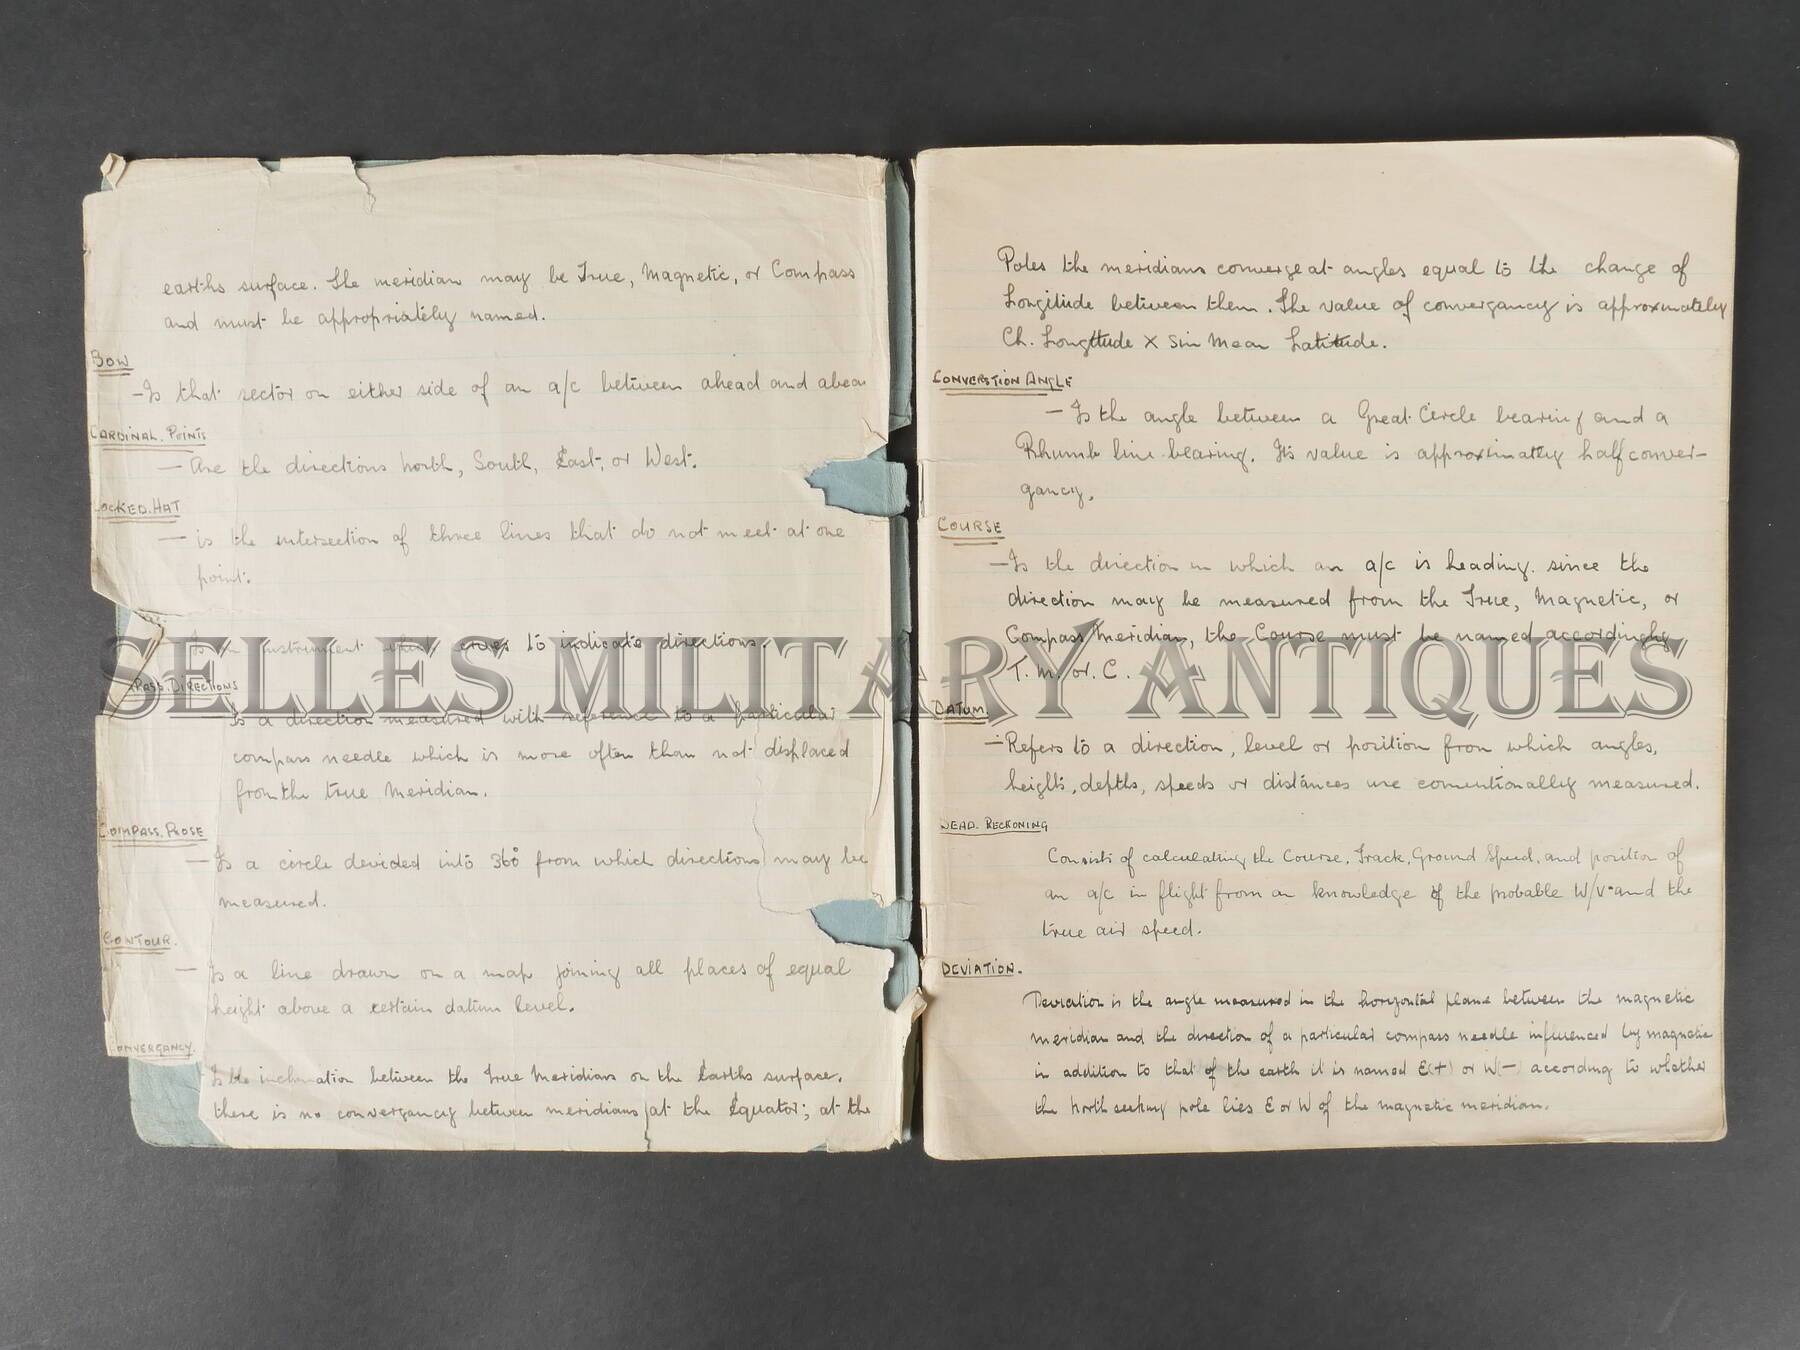 earths surface. The meridian may be True, Magnetic, or Compass
and must be appropriately named.
BOW
– Is that sector on either side of an a/c between ahead and abeam
CARDINAL. POINTS
– Are the directions North, South, East, or West.
COCKED. HAT
– is the intersection of three lines that do not meet at one
point.
instrument which erves to indicate directions.
PASS. DIRECTIONS
Is a direction measured with reference to a particular
compass needle which is more often than not displaced
from the true Meridian.
COMPASS. ROSE
– Is a circle devided into 360° from which directions may be
measured.
CONTOUR.
– Is a line drawn on a map joining all places of equal
height above a certain datum level.
CONVERGANCY.
Is the inclination between the True Meridians on the Earths surface.
there is no convergancy between meridians at the Equator; at the
Poles the meridians converge at angles equal to the change of
Longitude between them. The value of convergancy is approximately
Ch. Longitude × Sin Mean Latitude.
CONVERSTION ANGLE
– Is the angle between a Great. Circle bearing and a
Rhumb line bearing. Its value is approximatly half conver–
gancy.
COURSE
– Is the direction in which an a/c is heading. since the
direction may be measured from the True, Magnetic, or
Compass Meridian, the Course must be named accordingly
T. M. or. C.
DATUM.
– Refers to a direction, level or position from which angles,
heights, depths, speeds or distances are conventionally measured.
DEAD. RECKONING
Consists of calculating the Course, Track, Ground Speed, and position of
an a/c in flight from an knowledge of the probable W/V and the
true air speed.
DEVIATION.
Deviation is the angle measured in the horizontal plane between the magnetic
meridian and the direction of a particular compass needle influenced by magnetic
in addition to that of the earth it is named E(+) or W(–) according to whether
the North seeking pole lies E or W of the magnetic meridian.
SELLES MILITARY ANTIQUES